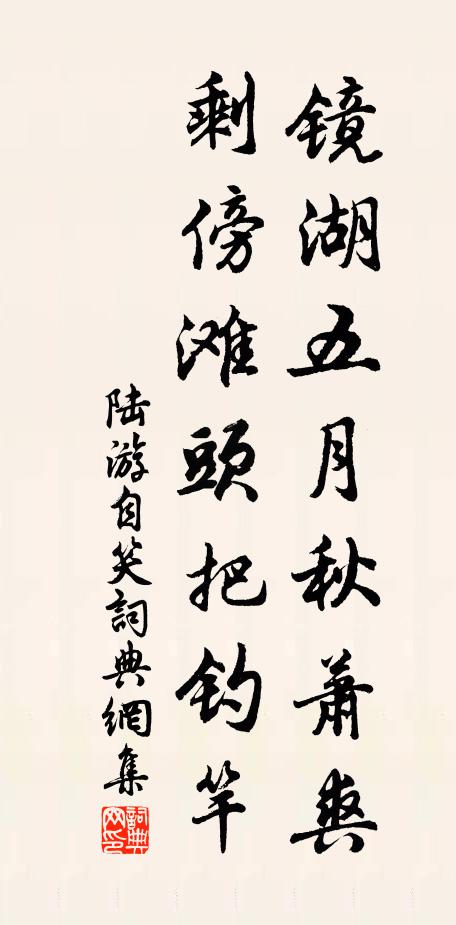 镜湖五月秋萧爽
剩傍滩頭把钓竿
陆游自笑詞典網集
詞典网印